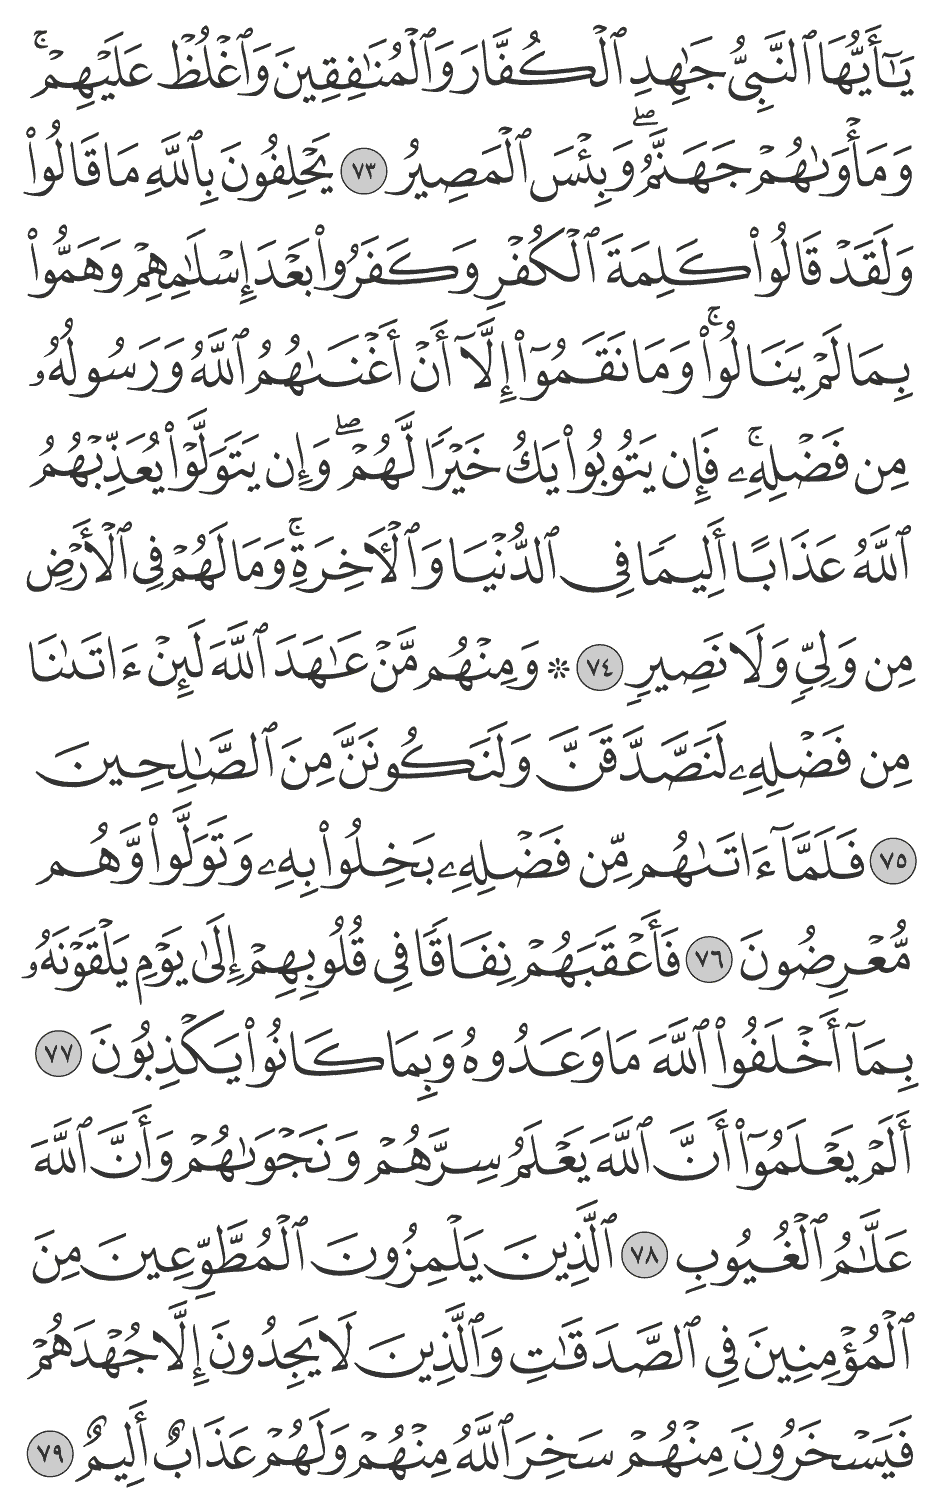 يَـٰٓأَيُّهَا ٱلنَّبِىُّ جَـٰهِدِ ٱلْكُفَّارَ وَٱلْمُنَـٰفِقِينَ وَٱغْلُظْ عَلَيْهِمْ ۚ
وَمَأْوَىٰهُمْ جَهَنَّمُ ۖ وَبِئْسَ ٱلْمَصِيرُ ٧٣ يَحْلِفُونَ بِٱللَّهِ مَا قَالُوا۟
وَلَقَدْ قَالُوا۟ كَلِمَةَ ٱلْكُفْرِ وَكَفَرُوا۟ بَعْدَ إِسْلَـٰمِهِمْ وَهَمُّوا۟
بِمَا لَمْ يَنَالُوا۟ ۚ وَمَا نَقَمُوٓا۟ إِلَّآ أَنْ أَغْنَىٰهُمُ ٱللَّهُ وَرَسُولُهُۥ
مِن فَضْلِهِۦ ۚ فَإِن يَتُوبُوا۟ يَكُ خَيْرًا لَّهُمْ ۖ وَإِن يَتَوَلَّوْا۟ يُعَذِّبْهُمُ
ٱللَّهُ عَذَابًا أَلِيمًا فِى ٱلدُّنْيَا وَٱلْـَٔاخِرَةِ ۚ وَمَا لَهُمْ فِى ٱلْأَرْضِ
مِن وَلِىٍّ وَلَا نَصِيرٍ ٧٤ ۞ وَمِنْهُم مَّنْ عَـٰهَدَ ٱللَّهَ لَئِنْ ءَاتَىٰنَا
مِن فَضْلِهِۦ لَنَصَّدَّقَنَّ وَلَنَكُونَنَّ مِنَ ٱلصَّـٰلِحِينَ
٧٥ فَلَمَّآ ءَاتَىٰهُم مِّن فَضْلِهِۦ بَخِلُوا۟ بِهِۦ وَتَوَلَّوا۟ وَّهُم
مُّعْرِضُونَ ٧٦ فَأَعْقَبَهُمْ نِفَاقًا فِى قُلُوبِهِمْ إِلَىٰ يَوْمِ يَلْقَوْنَهُۥ
بِمَآ أَخْلَفُوا۟ ٱللَّهَ مَا وَعَدُوهُ وَبِمَا كَانُوا۟ يَكْذِبُونَ ٧٧
أَلَمْ يَعْلَمُوٓا۟ أَنَّ ٱللَّهَ يَعْلَمُ سِرَّهُمْ وَنَجْوَىٰهُمْ وَأَنَّ ٱللَّهَ
عَلَّـٰمُ ٱلْغُيُوبِ ٧٨ ٱلَّذِينَ يَلْمِزُونَ ٱلْمُطَّوِّعِينَ مِنَ
ٱلْمُؤْمِنِينَ فِى ٱلصَّدَقَـٰتِ وَٱلَّذِينَ لَا يَجِدُونَ إِلَّا جُهْدَهُمْ
فَيَسْخَرُونَ مِنْهُمْ سَخِرَ ٱللَّهُ مِنْهُمْ وَلَهُمْ عَذَابٌ أَلِيمٌ ٧٩